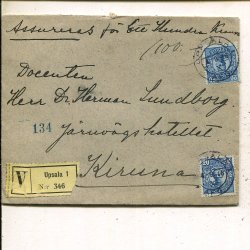 Assureras för Ett Hundra Kronor
/100./
Docenten
Herr Dr. Herman Lundborg
134
Järnvägshotellet
Kiruna
V
Upsala 1
N:r 346